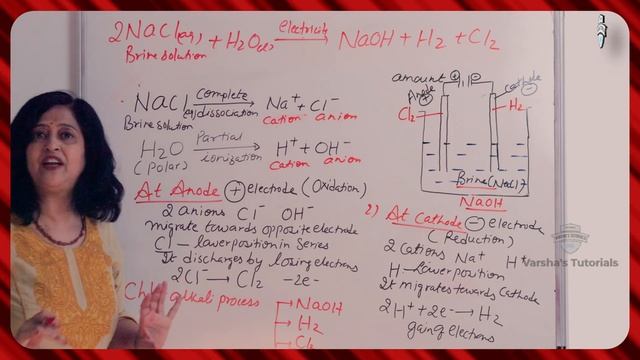 2NaCl(aq) + H2O(l) electricity → NaOH + H2 + Cl2
Brine solution
NaCl Complete dissociation → Na+ + Cl-
Brine solution cation anion
H2O Partial ionization → H+ + OH-
(polar) cation anion
At Anode (+) electrode (Oxidation)
2 anions Cl- OH-
migrate towards opposite electrode
Cl- lower position in series
It discharges by losing electrons
2Cl- → Cl2 -2e-
alkali process
→ NaOH
→ H2
→ Cl2
amount + -
Anode +
cathode -
Cl2
H2
Brine (NaCl)
NaOH
2) At Cathode (-) electrode
(Reduction)
2 Cations Na+ H+
H - lower position
It migrates towards Cathode
2H+ + 2e- → H2
gain of electrons
Varsha's Tutorials